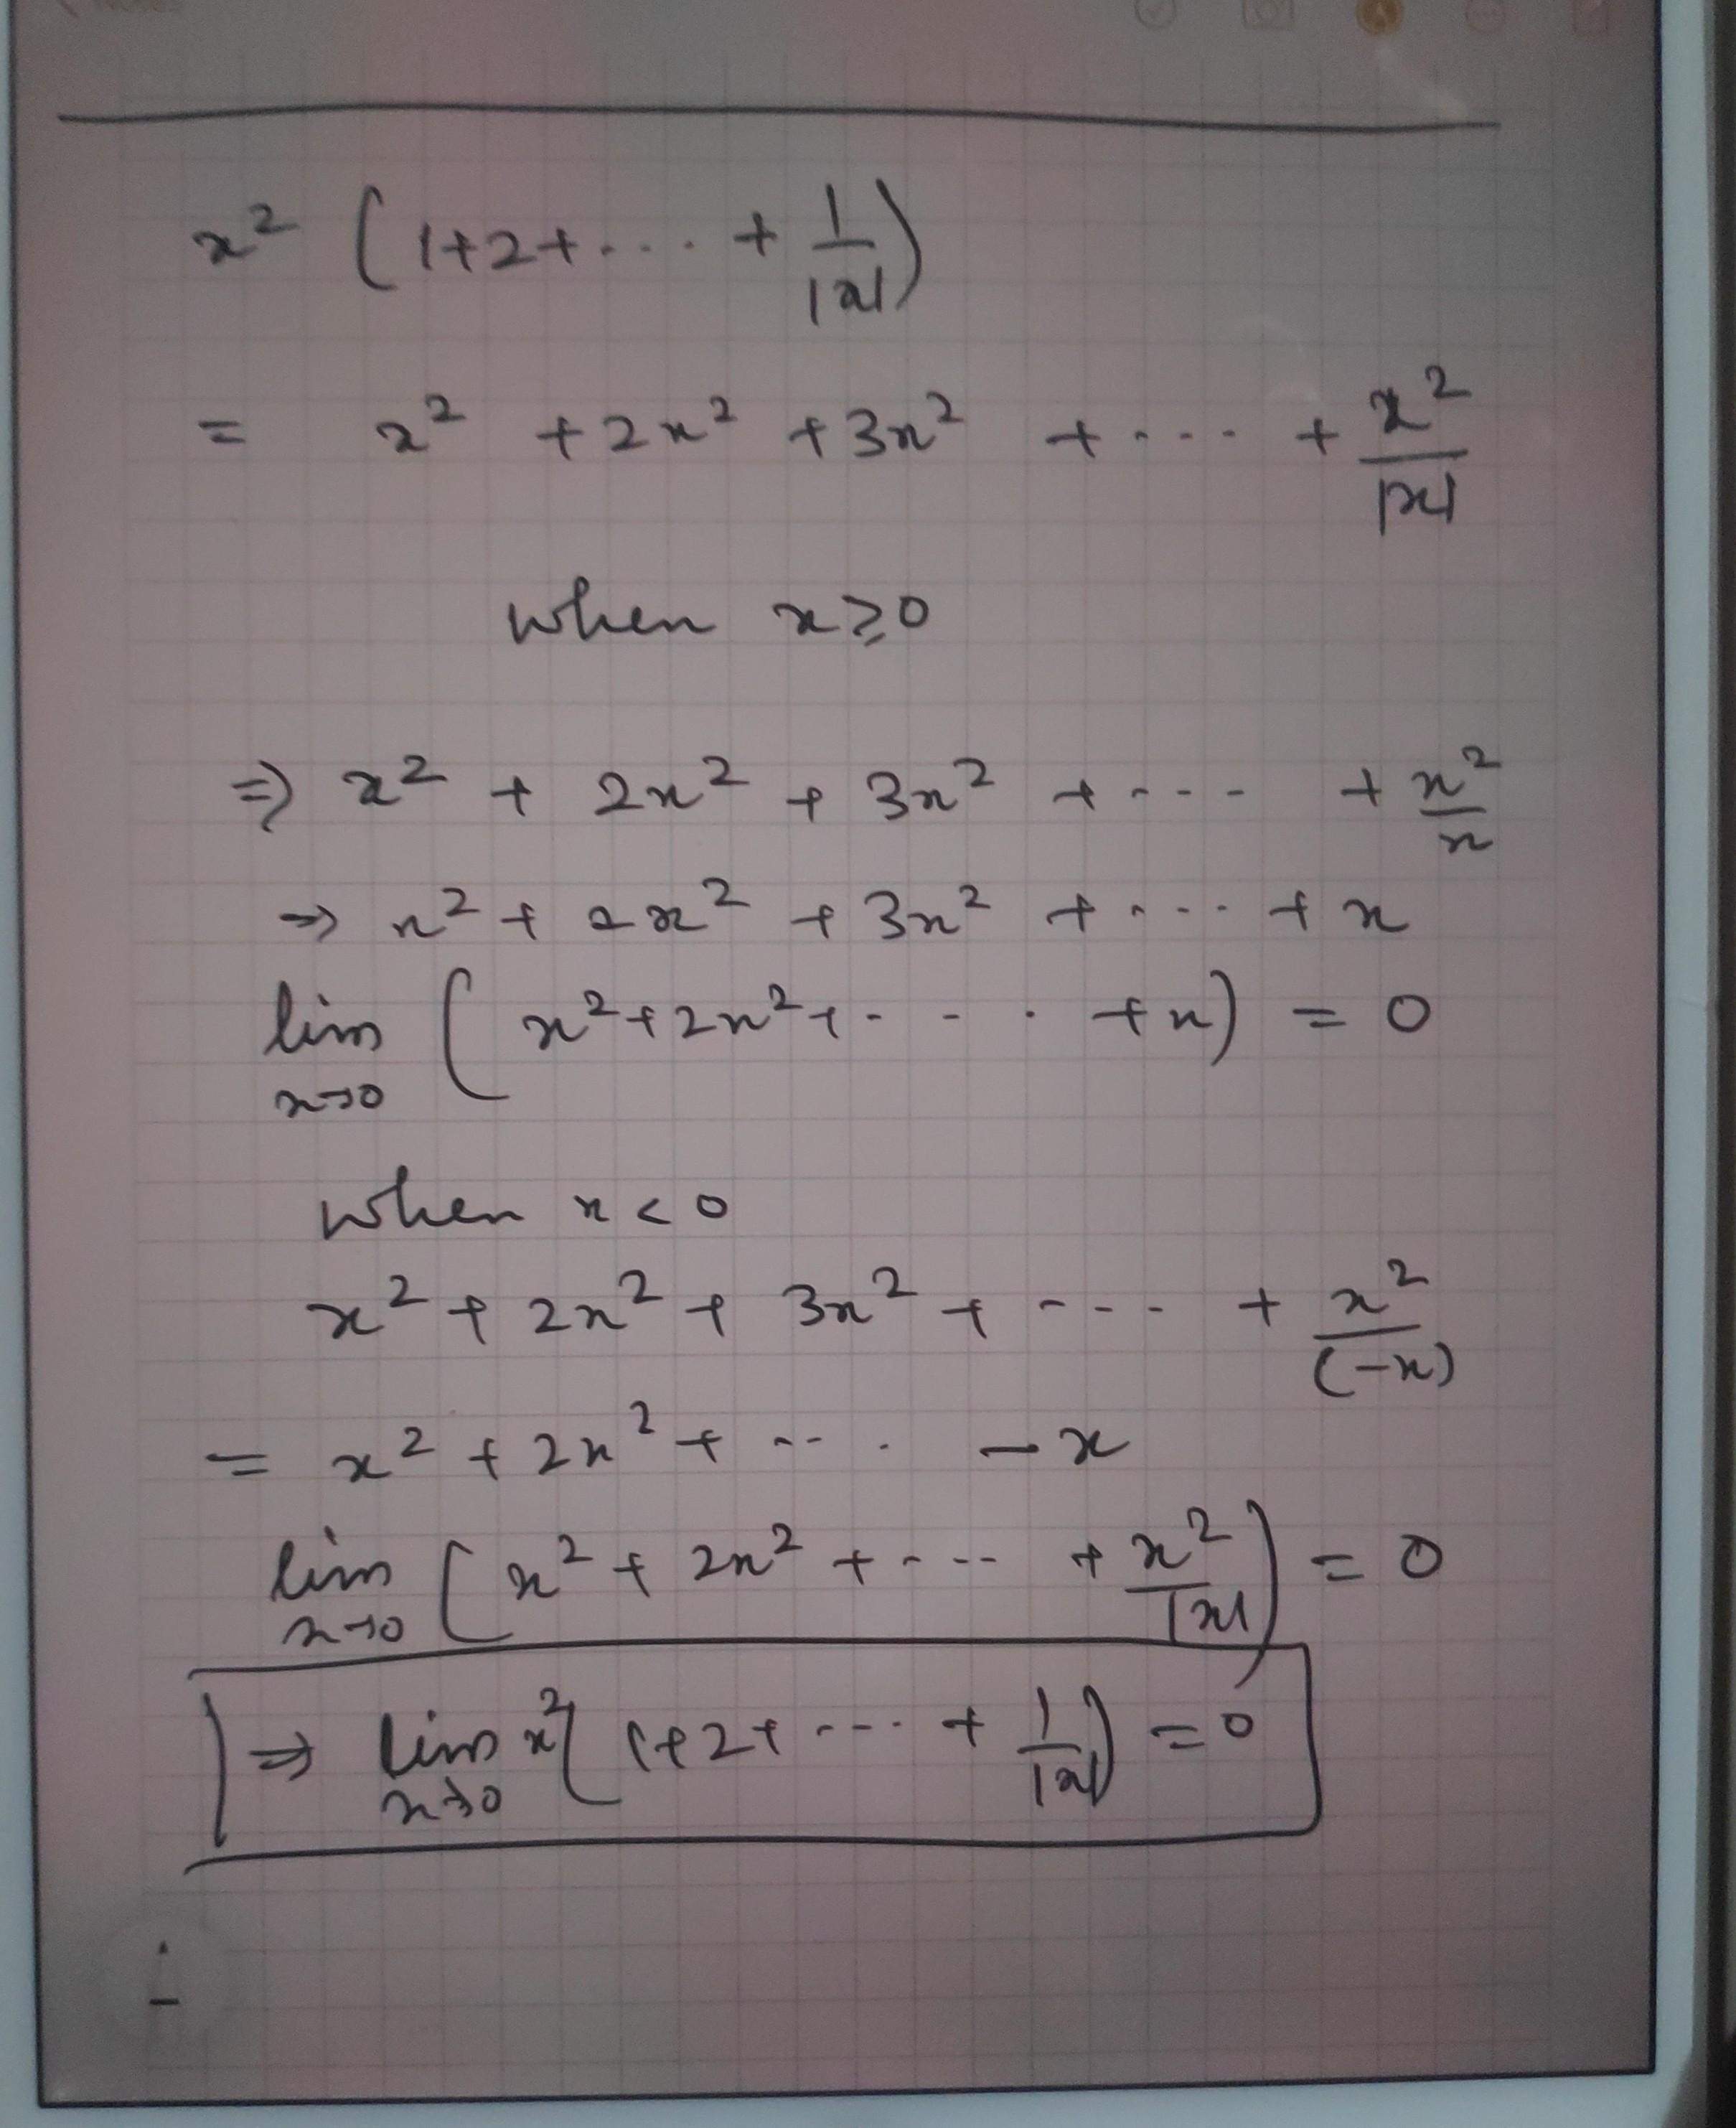 x² (1+2+... + 1/|x|)
= x² + 2x² + 3x² + ... + x²/|x|
when x ≥ 0
⇒ x² + 2x² + 3x² + ... + x²/x
⇒ x² + 2x² + 3x² + ... + x
lim x→0 (x² + 2x² + ... + x) = 0
when x < 0
x² + 2x² + 3x² + ... + x²/(-x)
= x² + 2x² + ... - x
lim x→0 (x² + 2x² + ... + x²/|x|) = 0
⇒ lim x→0 x² (1+2+ ... + 1/|x|) = 0